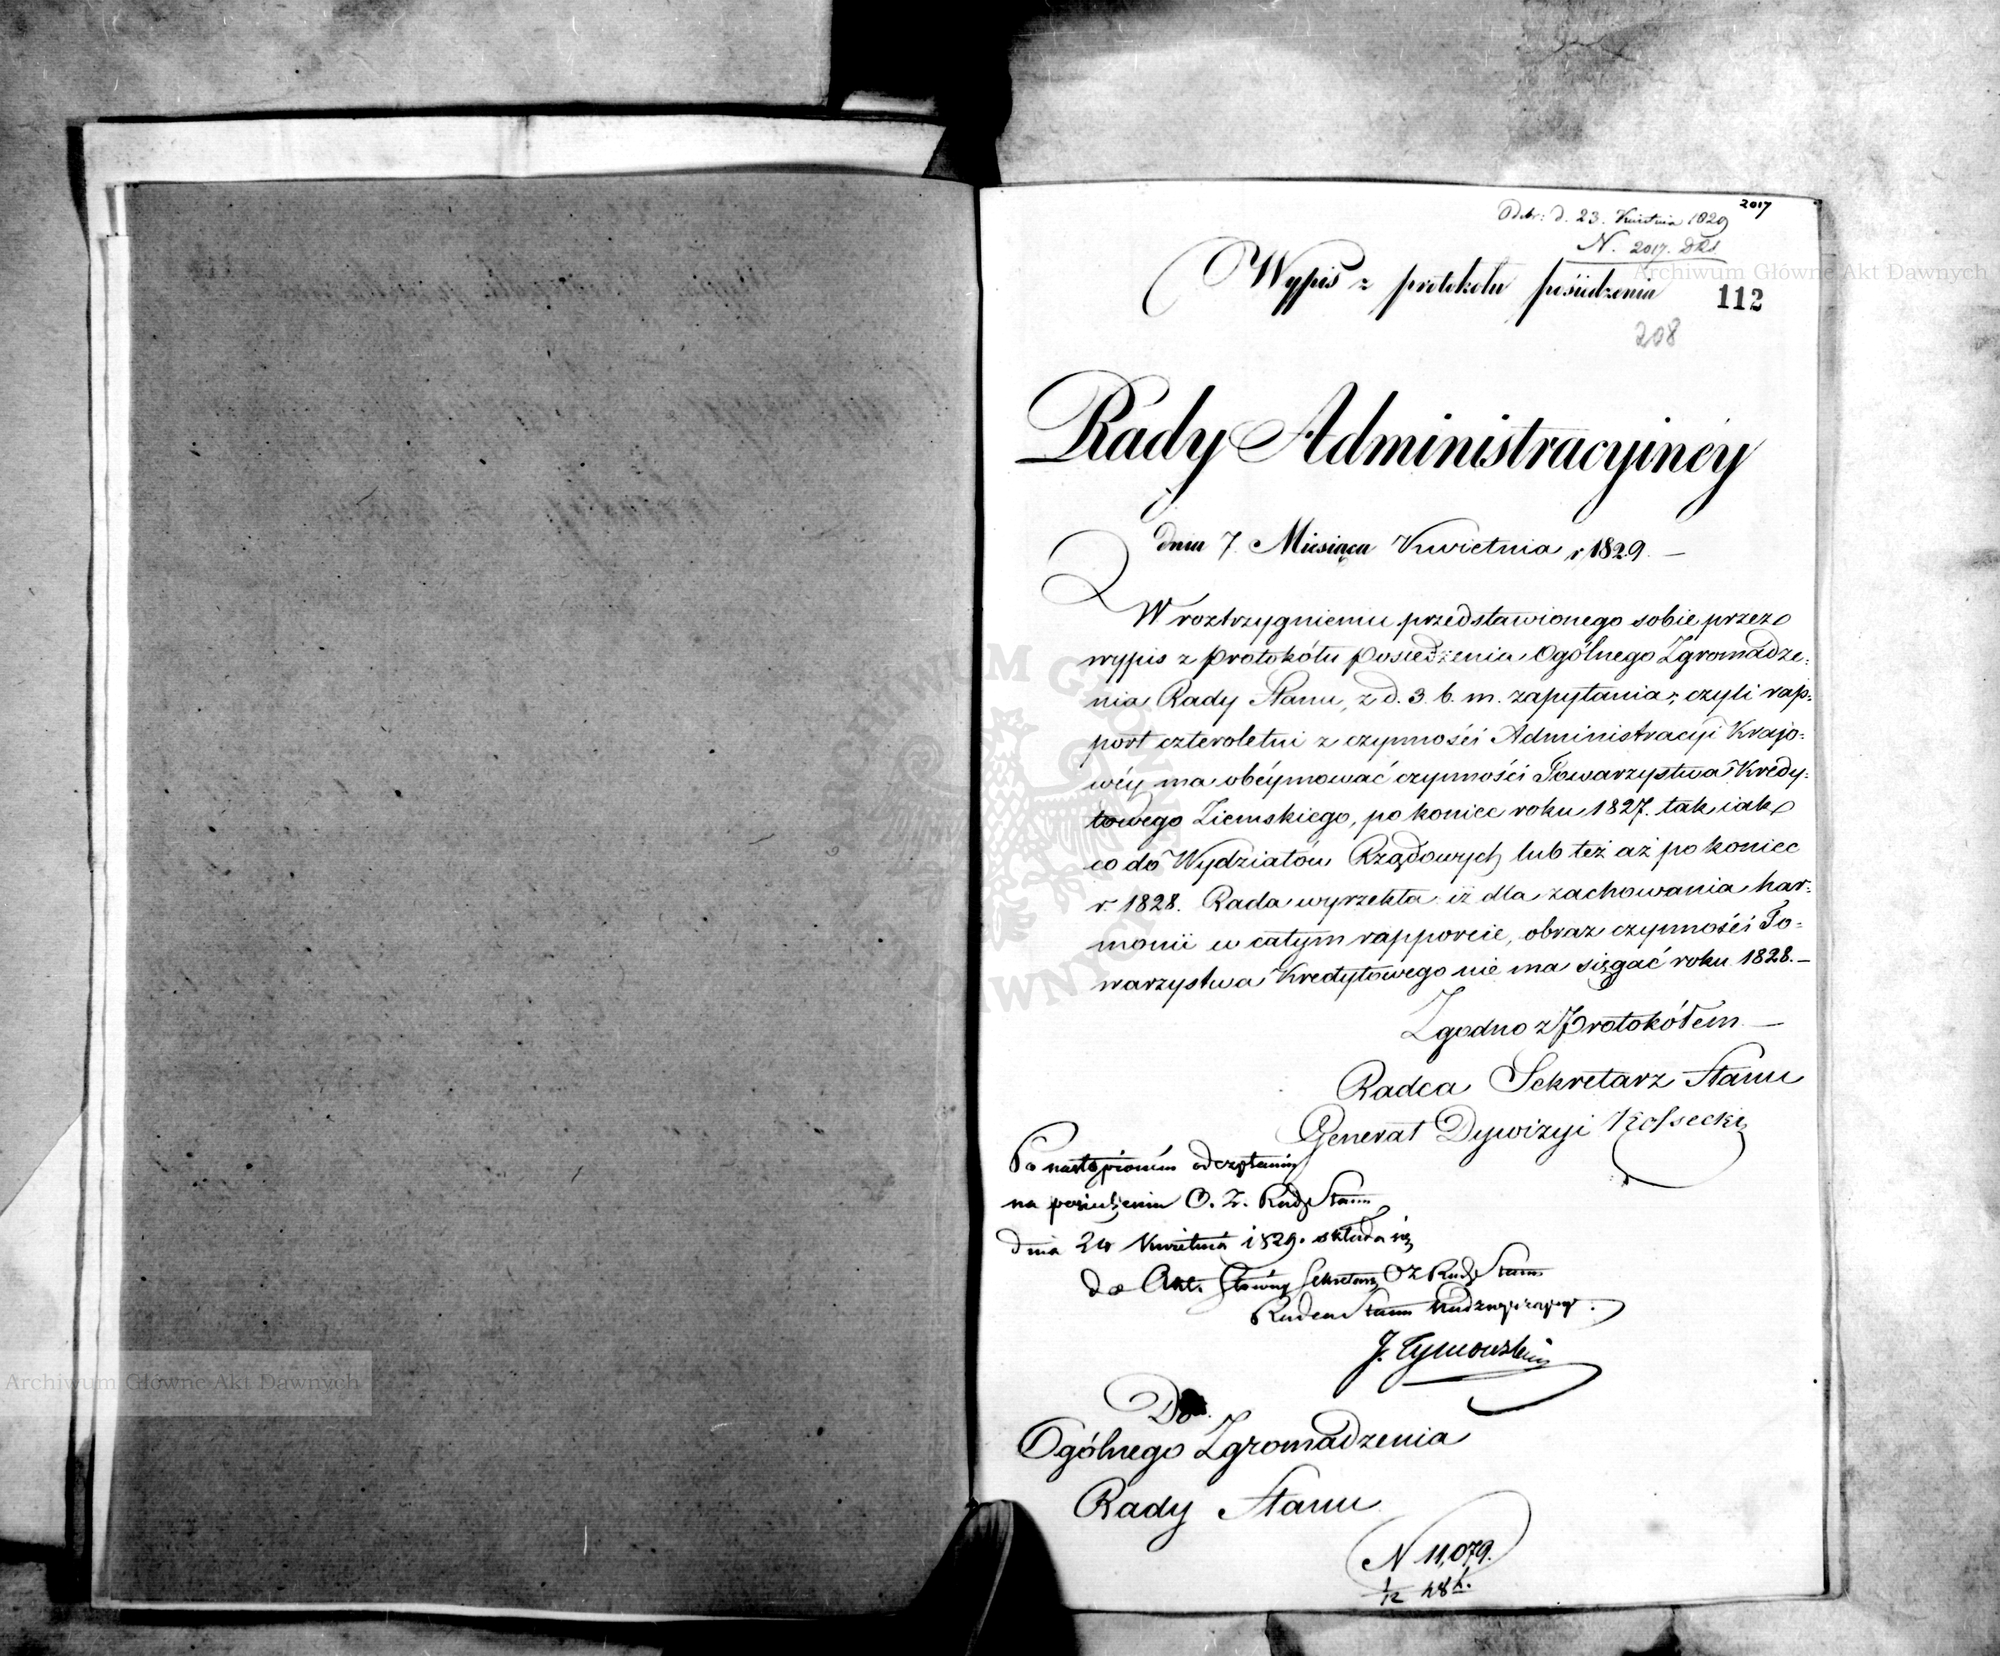 2017
Odebr: d. 23. Kwietnia 1829
N. 2017. DRS
Wypis z protokołu posiedzenia
112
208
Rady Administracyinéy
dnia 7. Miesiąca Kwietnia r 1829. —
W roztrzygnieniu przedstawionego sobie przez
wypis z Protokółu Posiedzenia Ogólnego Zgromadze:
nia Rady Stanu, z d. 3. b. m. zapytania; czyli rap:
port czteroletni z czynności Administracyi Krajo:
wéy ma obéymować czynności Towarzystwa Kredy:
towego Ziemskiego, po koniec roku 1827. tak iak
co do Wydziałów Rządowych lub też aż po koniec
r. 1828. Rada wyrzekła iż dla zachowania har:
monii w całym rapporcie, obraz czynności To:
warzystwa Kredytowego nie ma sięgać roku 1828. —
Zgodno z Protokółem —
Radca Sekretarz Stanu
Generał Dywizyi Kossecki
Po nastąpioném odczytaniu
na posiedzeniu O. Z. Rady Stanu
dnia 24 Kwietnia 1829. składa się
do Akt. Główny Sekretarz OZ Rady Stanu
Radca Stanu Nadzwyczayny.
J. Tymowski
Do
Ogólnego Zgromadzenia
Rady Stanu
N 11,079.
1/12 48 k.
Archiwum Główne Akt Dawnych
Archiwum Główne Akt Dawnych
ARCHIWUM GŁÓWNE AKT DAWNYCH